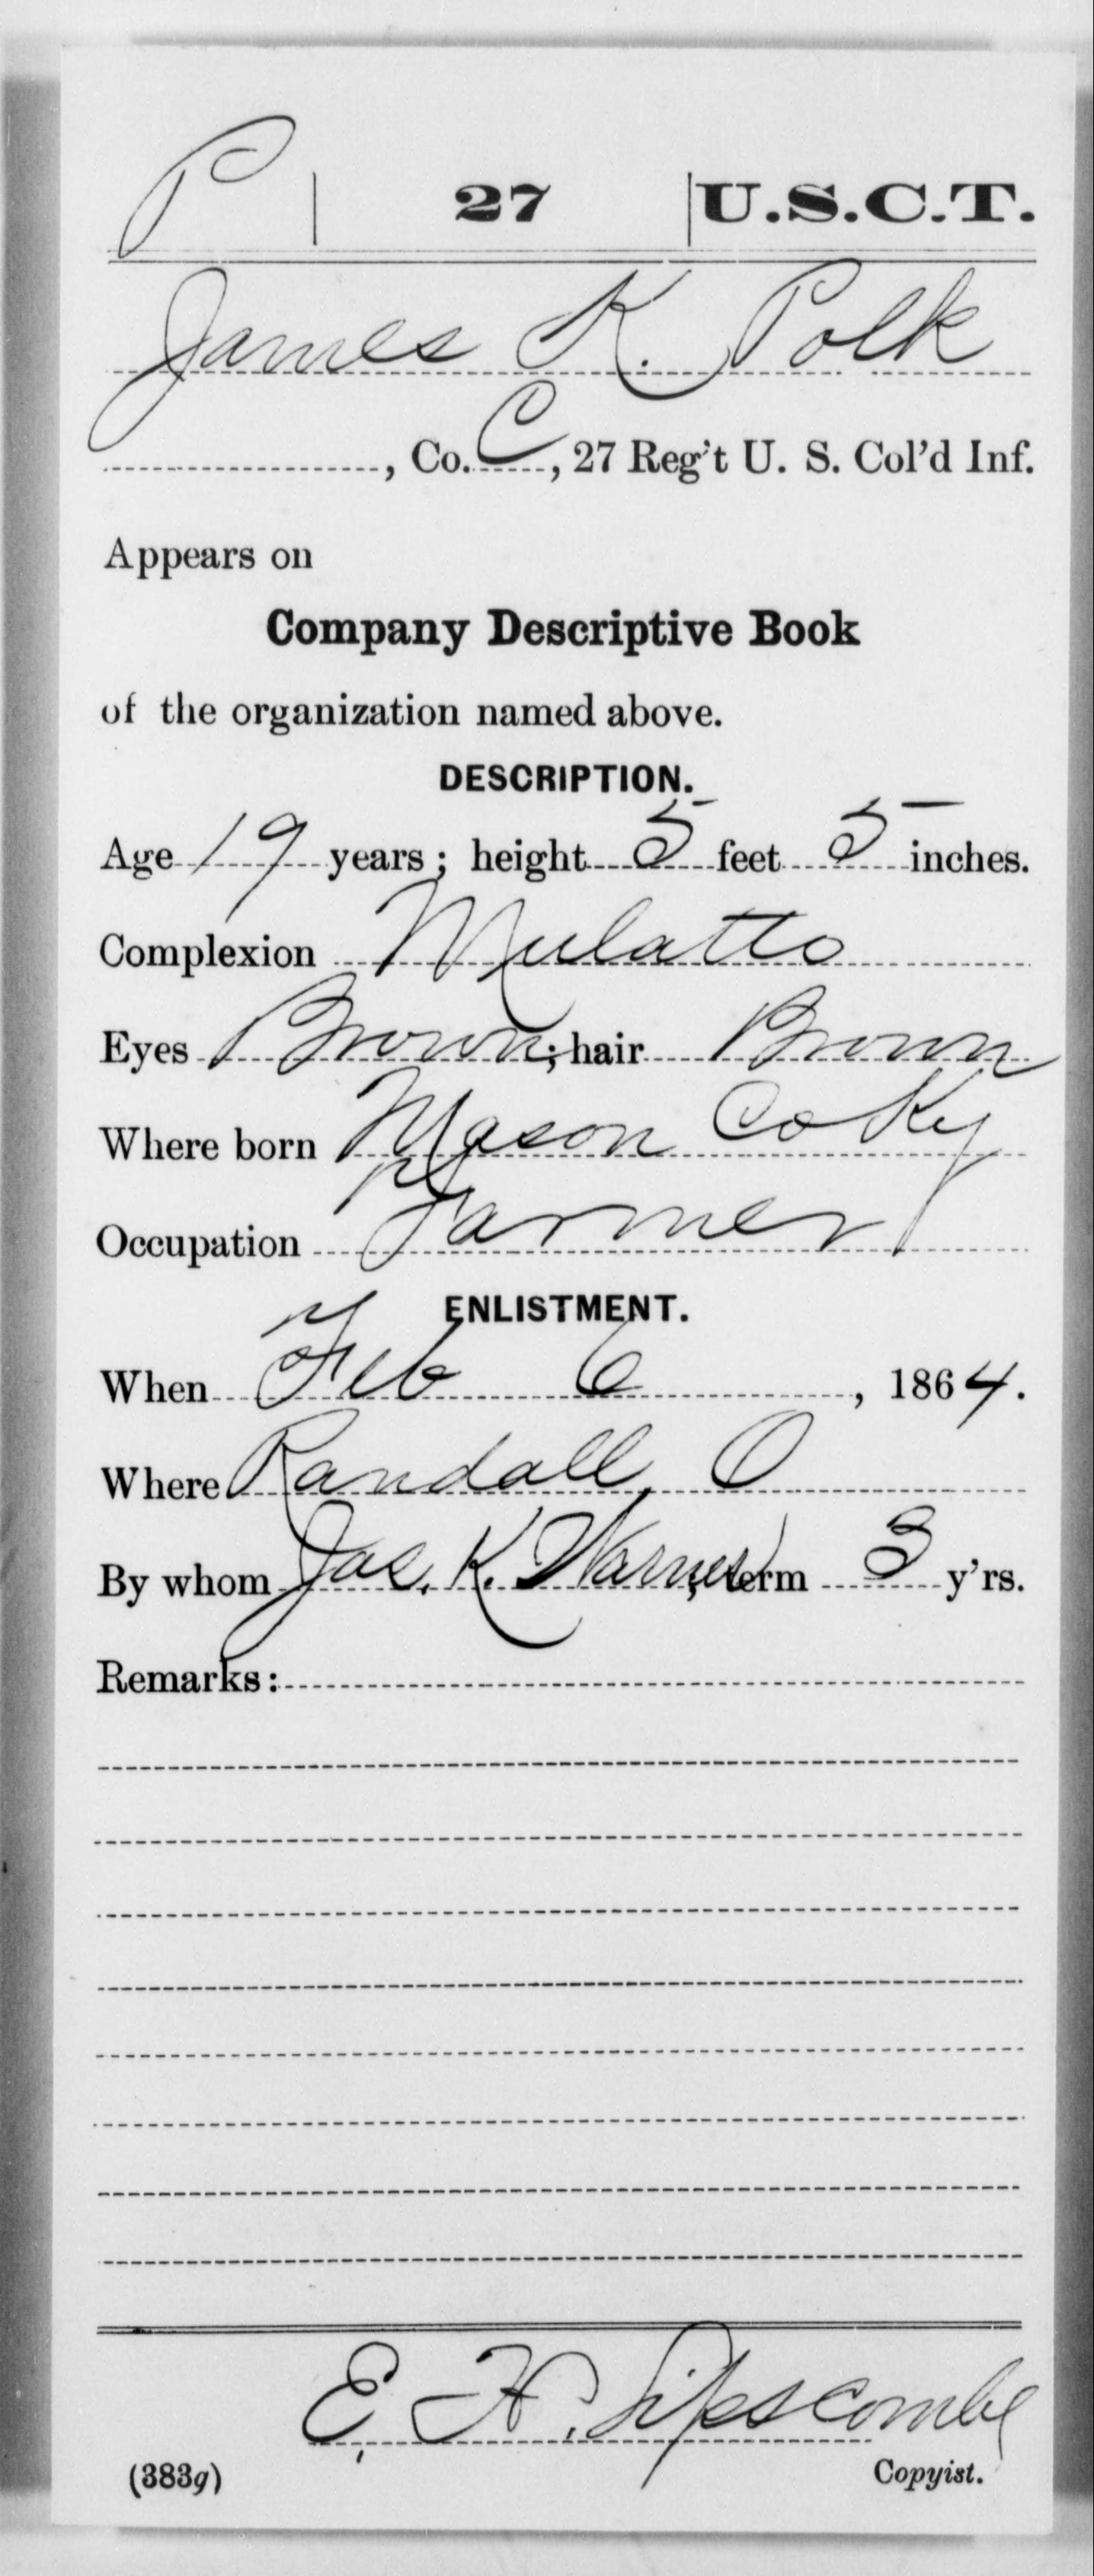 P | 27 | U.S.C.T.
James K. Polk
, Co. C, 27 Reg't U. S. Col'd Inf.
Appears on
Company Descriptive Book
of the organization named above.
DESCRIPTION.
Age 19 years; height 5 feet 5 inches.
Complexion Mulatto
Eyes Brown; hair Brown
Where born Mason Co Ky
Occupation Farmer
ENLISTMENT.
When Feb 6, 1864.
Where Randall, O
By whom Jas. K. Warner, term 3 y'rs.
Remarks:
E. H. Lipscombe
(383g) Copyist.